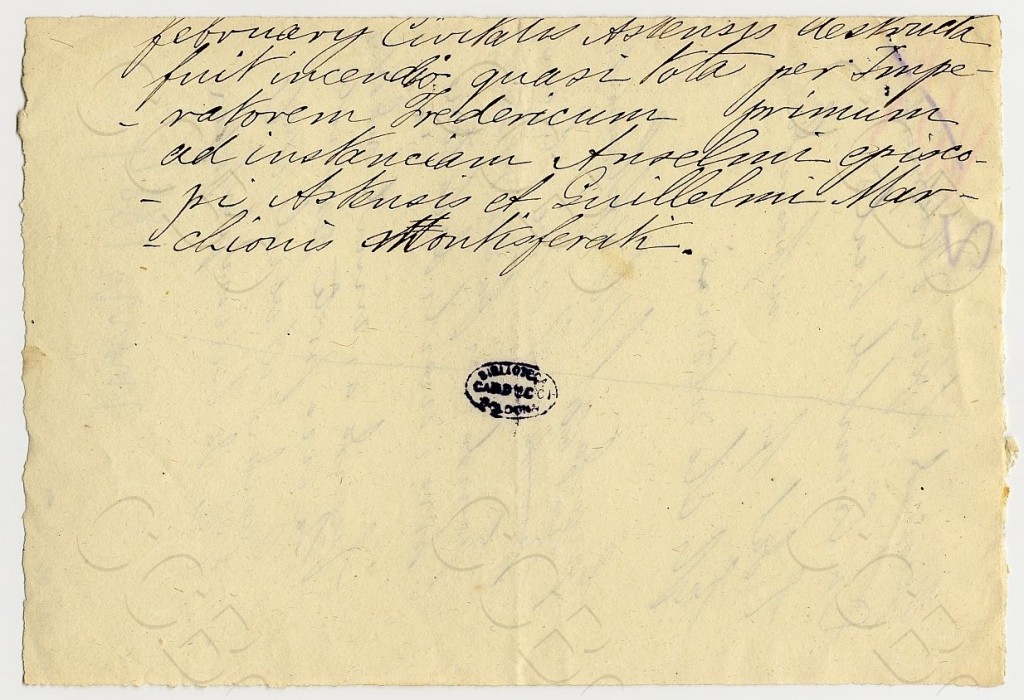 february Civitatis Astensis destructa
fuit incendio quasi tota per Impe-
- ratorem Fredericum primum
ad instanciam Anselmi episco-
- pi Astensis et Guillelmi Mar-
- chionis Montisferati.
BIBLIOTECA
CARDUCCI
BOLOGNA